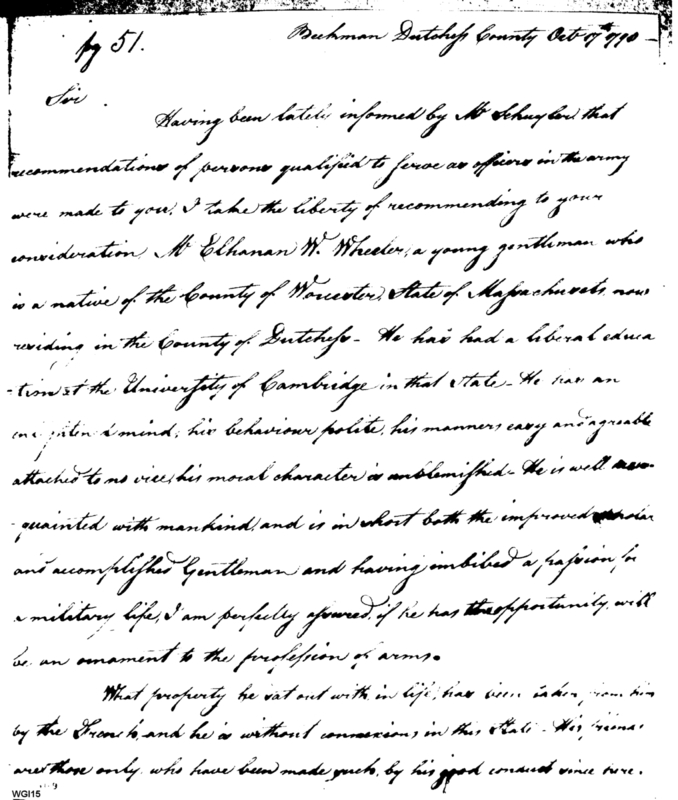 pg 51.
Beekman Dutchess County Oct 17th 1798 —
Sir
Having been lately informed by Mr Schuyler that
recommendations of persons qualified to serve as officers in the army
were made to you, I take the liberty of recommending to your
consideration, Mr Elhanan W. Wheeler, a young gentleman who
is a native of the County of Worcester, State of Massachusets, now
residing in the County of Dutchess - He has had a liberal educa
-tion at the University of Cambridge in that State - He has an
mind, his behaviour polite, his manners easy and agreable
attached to no vice, his moral character is unblemished - He is well
-quainted with mankind, and is in short both the improved scholar
and accomplished Gentleman and having imbibed a passion for
a military life, I am perfectly assured, if he has the opportunity, will
be an ornament to the profession of arms.
What property he sat out with in life, has been taken from him
by the French, and he is without connexions in this State - His friends
are those only who have been made such, by his good conduct since here.
WGI15